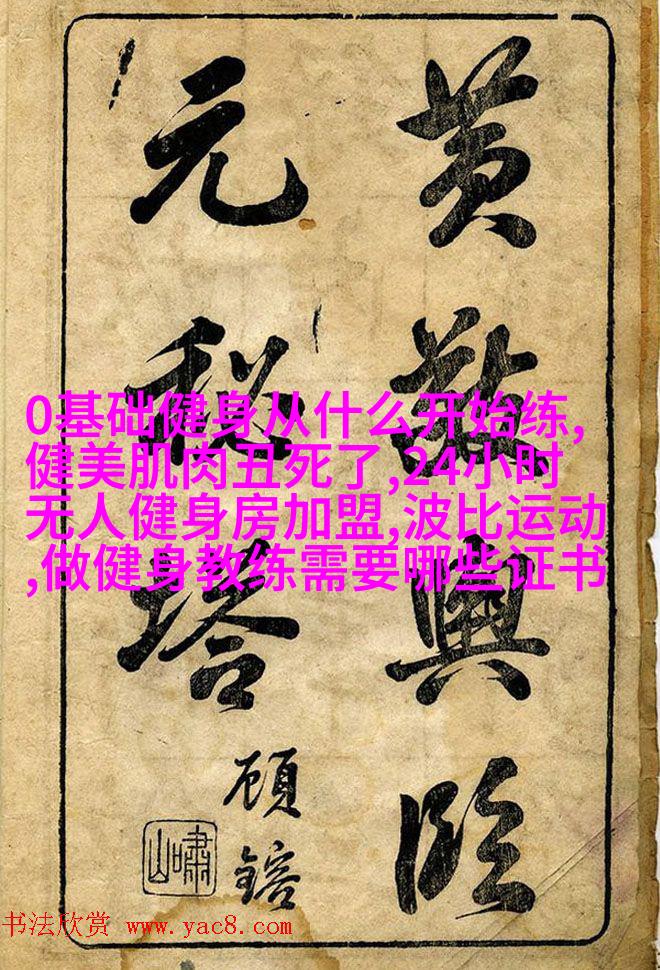 黄敬輿臨
元秘塔
顧鎔
嘯山
0基础健身从什么开始练,
健美肌肉丑死了,24小时
无人健身房加盟,波比运动
,做健身教练需要哪些证书
书法欣赏 www.yac8.com